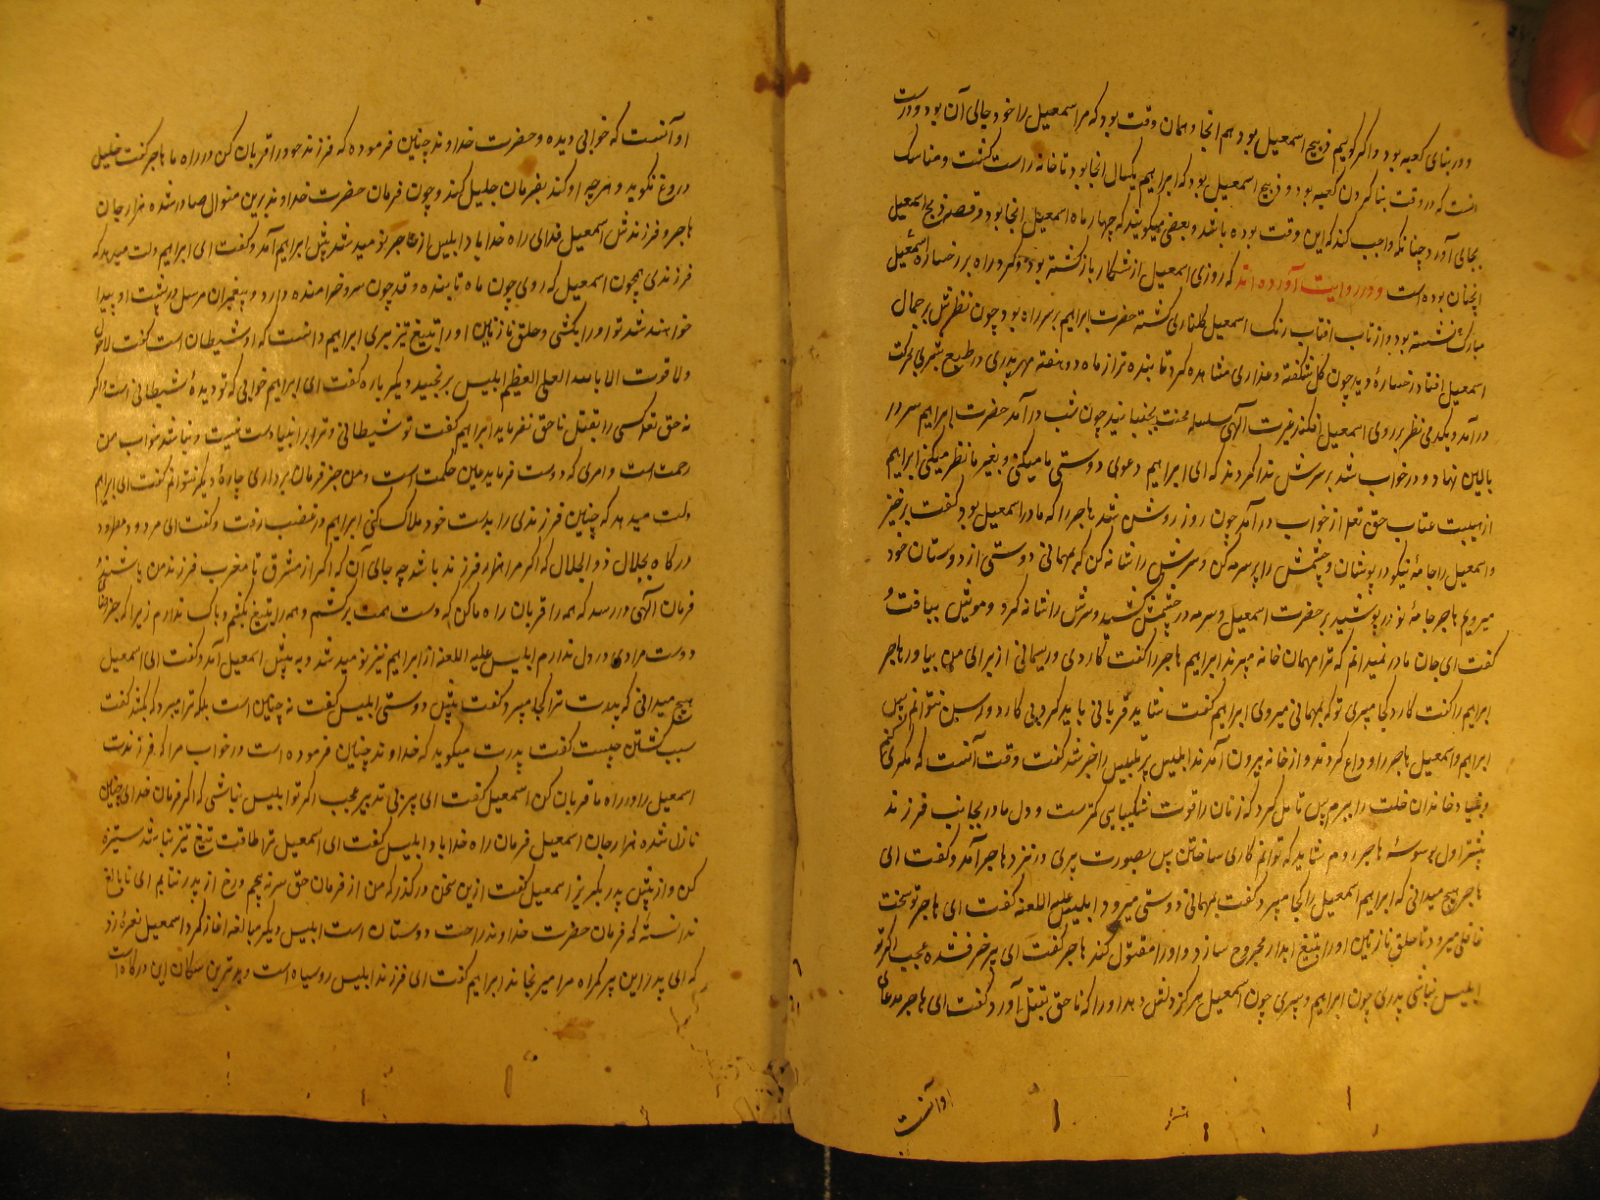 و در بنای کعبه بود و اگر گوییم ذبیح اسمعیل بود هم انجا و همان وقت بود که مر اسمعیل را خود جالی آن بود و درست
انست که در وقت بنا کردن کعبه بود و ذبیح اسمعیل بود که ابراهیم یکسال انجا بود تا خانه راست گشت و مناسک
بجای آورد چنانکه واجب کند که این وقت بوده باشد و بعضی میگویند که چهار ماه اسمعیل انجا بود و قصه ذبح اسمعیل
انچنان بوده است و در روایت آورده اند که روزی اسمعیل از شکار باز گشته بود و گرد راه بر رخساره اسمعیل
مبارک نشسته بود و از تاب افتاب رنک اسمعیل گلناری گشته حضرت ابراهیم بر سر راه بود چون نظرش بر جمال
اسمعیل افتاد رخساره دید چون کل شکفته و عذاری مشاهده کرد تابنده تر از ماه دو هفته مهر پدری در طبع بشری بحرکت
در آمد و یکدمی نظر بر روی اسمعیل افکند غیرت آلهی سلسله محنت بجنبانید چون شب در آمد حضرت ابراهیم سر در
بالین نهاد و در خواب شد بر سرش ندا کردند که ای ابراهیم دعوی دوستی ما میکنی و بغیر ما نظر میکنی ابراهیم
از هیبت عتاب حق تعا از خواب در آمد چون روز روشن شد هاجر را که مادر اسمعیل بود گفت برخیز
و اسمعیل را جامه نیکو در پوشان و چشمش را پر سرمه کن و سرش را شانه کن که بمهمانی دوستی از دوستان خود
میرویم هاجر جامه نو در پوشید بر حضرت اسمعیل و سرمه در چشمش کشید و سرش را شانه کرد و مویش ببافت و
گفت ای جان مادر نمیدانم که ترا مهمان خانه میبرند ابراهیم هاجر را گفت کاردی و ریسمانی از برای من بیاور هاجر
ابراهیم را گفت کارد کجا میبری تو که بمهمانی میروی ابراهیم گفت شاید قربانی باید کرد بی کارد و رسن نتوانم پس
ابراهیم و اسمعیل هاجر را وداع کردند و از خانه بیرون آمدند ابلیس پر تلبیس را خبر شد گفت وقت آنست که مکری کنم
و بنیاد خاندان خلت را ببرم پس تامل کرد که زنان را قوت شکیبایی کمترست و دل مادر بجانب فرزند
بیشتر اول بوسوسه هاجر روم شاید که توانم کاری ساختن پس بصورت پیری در نزد هاجر آمد و گفت ای
هاجر هیچ میدانی که ابراهیم اسمعیل را کجا میبرد گفت بمهمانی دوستی میرود ابلیس علیه اللعنه گفت ای هاجر تو سخت
غافلی میرود تا حلق نازنین او را بتیغ ابدار مجروح سازد و او را مقتول کند هاجر گفت ای پیر خرفشده عجب اگر تو
ابلیس نباشی پدری چون ابراهیم و پسری چون اسمعیل هرگز دلش دهد او را که ناحق بقتل آورد گفت ای هاجر مدعای
اوآنست
اوآنست که خوابی دیده و حضرت خداوند چنین فرموده که فرزند خود را قربان کن در راه ما هاجر گفت خلیل
دروغ نگوید و هر چه او کند بفرمان جلیل کند و چون فرمان حضرت خداوند برین منوال صادر شده هزار جان
هاجر و فرزندش اسمعیل فدای راه خدا باد ابلیس از هاجر نومید شد پیش ابراهیم آمد و گفت ای ابراهیم دلت میدهد که
فرزندی همچون اسمعیل که روی چون ماه تابنده و قد چون سرو خرامنده دارد و پیغمبران مرسل در پشت او پیدا
خواهند شد تو او را بکشی و حلق نازنین او را بتیغ تیز ببری ابراهیم دانست که او شیطان است گفت لاحول
ولا قوت الا بالله العلی العظیم ابلیس برنجید دیگر باره گفت ای ابراهیم خوابی که تو دیده شیطانی است و اگر
نه حق تعا کسی را بقتل ناحق نفرماید ابراهیم گفت تو شیطانی و ترا بر انبیا دست نیست و نباشد خواب من
رحمت است و امری که دوست فرماید عین حکمت است و من جز فرمان برداری چاره دیگر نتوانم گفت ای ابراهیم
دلت میدهد که چنین فرزندی را بدست خود هلاک کنی ابراهیم در غضب رفت و گفت ای مردود مطرود
درگاه بجلال ذوالجلال که اگر مرا هزار فرزند باشد چه جای آن که اگر از مشرق تا مغرب فرزند من باشند و
فرمان آلهی در رسد که همه را قربان راه ما کن که دست همت برکشم و همه را بتیغ بکشم و باک ندارم زیرا که جز رضای
دوست مرادی در دل ندارم ابلیس علیه اللعنه از ابراهیم نیز نومید شد و به پیش اسمعیل آمد و گفت ای اسمعیل
هیچ میدانی که پدرت ترا کجا میبرد گفت پیش دوستی ابلیس گفت نه چنین است بلکه ترا میبرد که بکشد گفت
سبب کشتن چیست گفت پدرت میگوید که خداوند چنین فرموده است در خواب مرا که فرزندت
اسمعیل را در راه ما قربان کن اسمعیل گفت ای پیر بی تدبیر عجب اگر تو ابلیس نباشی که اگر فرمان خدای چنین
نازل شده هزار جان اسمعیل فرمان راه خدا باد ابلیس گفت ای اسمعیل ترا طاقت تیغ تیز نباشد ستیزه
کن و از پیش پدر بگریز اسمعیل گفت ازین سخن در گذر که من از فرمان حق سر نه پیچم و رخ از پدر نتابم ای نابالغ
ندانسته که فرمان حضرت خداوند راحت دوستان است ابلیس دیگر مبالغه اغاز کرد اسمعیل نعره زد
که ای پدر این پیر گمراه مرا میرنجاند ابراهیم گفت ای فرزند ابلیس روسیاه است و بدترین سکان این درگاه است